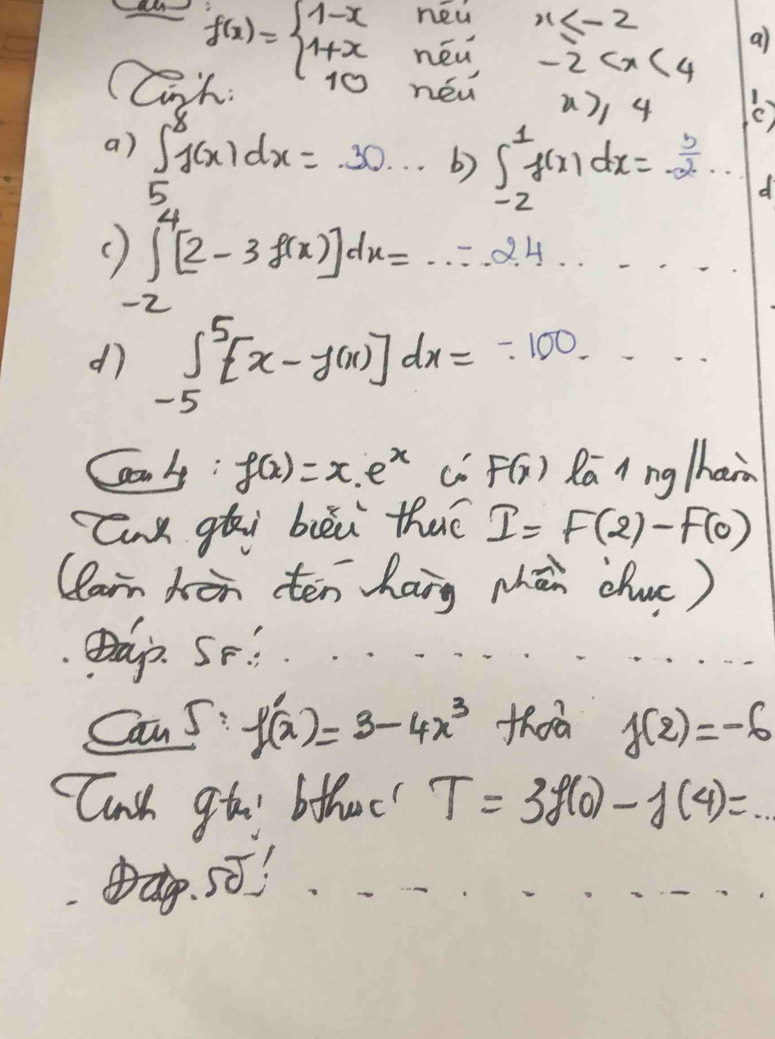 f(x) = { 1-x nếu x ≤ -2
1+x nếu -2 < x < 4
10 nếu x ≥ 4
Tính:
a) ∫₅⁸ f(x) dx = .30... b) ∫₋₂¹ f(x) dx = .3/2 ...
c) ∫₋₂⁴ [2 - 3 f(x)] dx = ..-.24. . . . . .
d) ∫₋₅⁵ [x - f(x)] dx = -100. . . .
Câu 4 : f(x) = x.eˣ có F(x) là 1 ng/hàm
Tính gtrị biểu thức I = F(2) - F(0)
(làm tròn đến hàng phần chục)
. Đáp. Số: . . . . . . . . . . .
Câu 5 : f'(x) = 3 - 4x³ thoả f(2) = -6
Tính gtrị bthức T = 3f(0) - f(4) = ...
. Đáp. Số: . . . . . . . . . .
a)
c)
d